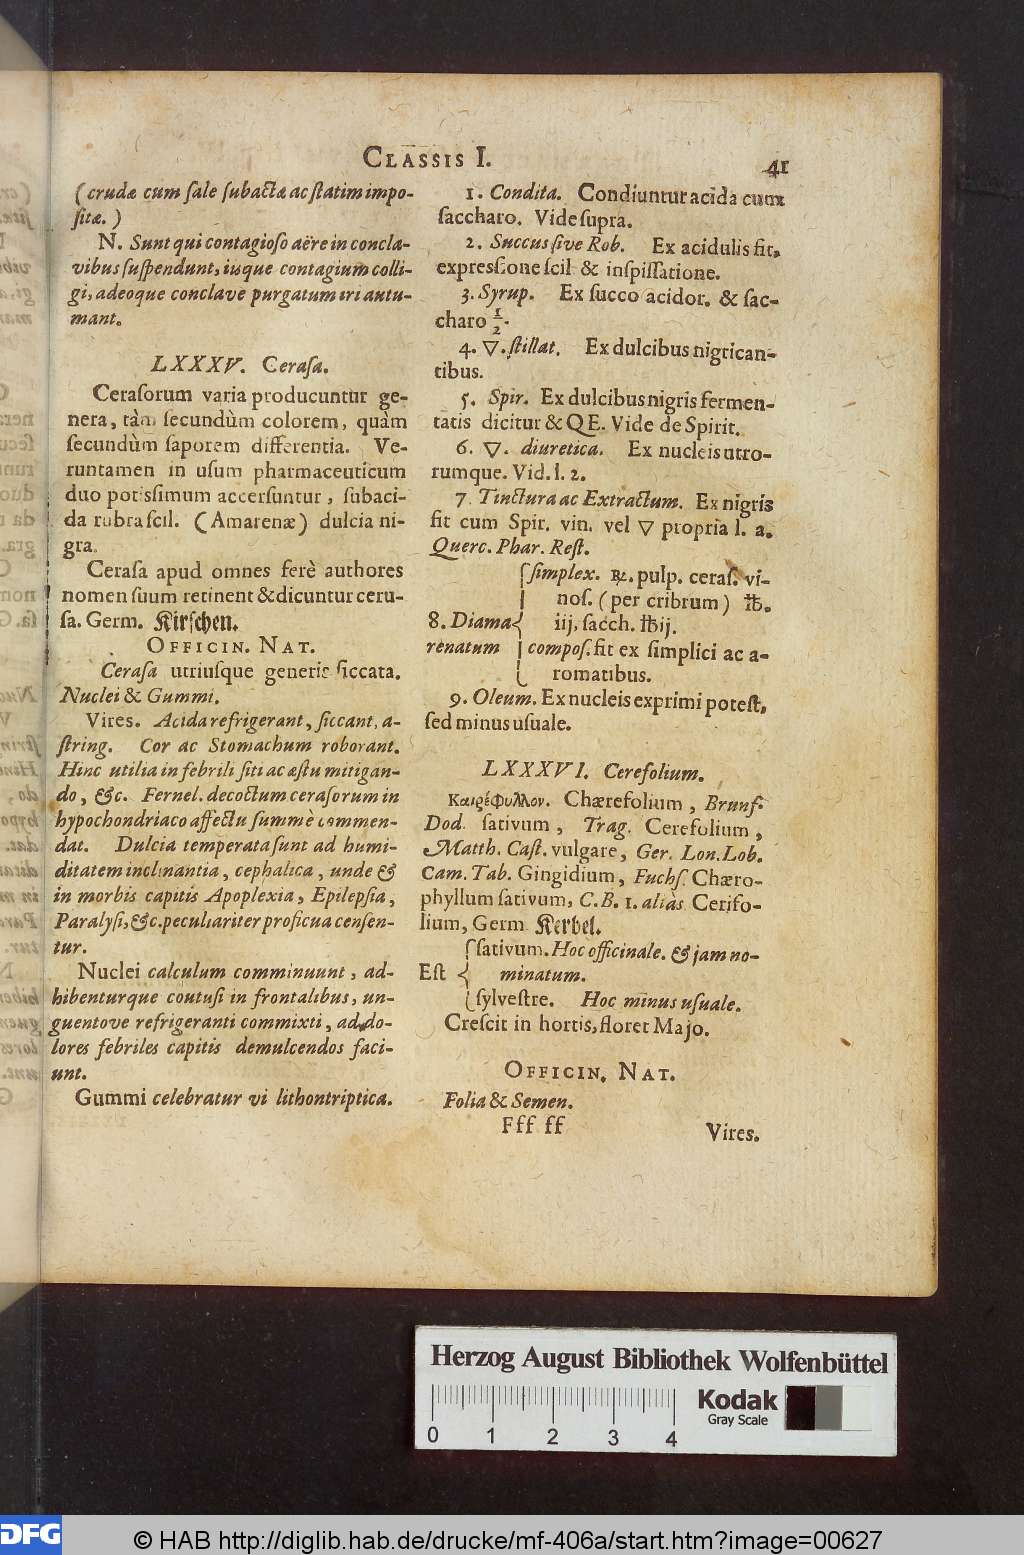 CLASSIS I. 41
(crudæ cum ſale ſubactæ ac ſtatim impo-
ſitæ.)
N. Sunt qui contagioſo aëre in concla-
vibus ſuſpendunt, iisque contagium colli-
gi, adeoque conclave purgatum iri autu-
mant.
LXXXV. Ceraſa.
Ceraſorum varia producuntur ge-
nera, tàm ſecundùm colorem, quàm
ſecundùm ſaporem differentia. Ve-
runtamen in uſum pharmaceuticum
duo potisſimum accerſuntur, ſubaci-
da rubra ſcil. (Amarenæ) dulcia ni-
gra.
Ceraſa apud omnes ferè authores
nomen ſuum retinent & dicuntur ceru-
ſa. Germ. Kirſchen.
OFFICIN. NAT.
Ceraſa utriuſque generis ſiccata.
Nuclei & Gummi.
Vires. Acida refrigerant, ſiccant, a-
ſtring. Cor ac Stomachum roborant.
Hinc utilia in febrili ſiti ac æſtu mitigan-
do, &c. Fernel. decoctum ceraſorum in
hypochondriaco affectu ſummè commen-
dat. Dulcia temperata ſunt ad humi-
ditatem inclinantia, cephalica, unde &
in morbis capitis Apoplexia, Epilepſia,
Paralyſi, &c. peculiariter proficua cenſen-
tur.
Nuclei calculum comminuunt, ad-
hibenturque coutuſi in frontalibus, un-
guentove refrigeranti commixti, ad do-
lores febriles capitis demulcendos faci-
unt.
Gummi celebratur vi lithontriptica.
1. Condita. Condiuntur acida cum
ſaccharo. Vide ſupra.
2. Succus ſive Rob. Ex acidulis fit,
expresſione ſcil & inſpiſſatione.
3. Syrup. Ex ſucco acidor. & ſac-
charo 1/2.
4. ▽. ſtillat. Ex dulcibus nigrican-
tibus.
5. Spir. Ex dulcibus nigris fermen-
tatis dicitur & QE. Vide de Spirit.
6. ▽. diuretica. Ex nucleis utro-
rumque. Vid. l. 2.
7. Tinctura ac Extractum. Ex nigris
fit cum Spir. vin. vel ▽ propria l. a.
Querc. Phar. Reſt.
ſimplex. ℞. pulp. ceraſ. vi-
noſ. (per cribrum) ℔.
8. Diama{ iij, ſacch. ℔ij.
renatum compoſ. fit ex ſimplici ac a-
romatibus.
9. Oleum. Ex nucleis exprimi poteſt,
ſed minus uſuale.
LXXXVI. Cerefolium.
Καιρέφυλλον. Chærefolium, Brunf.
Dod. ſativum, Trag. Cerefolium,
Matth. Caſt. vulgare, Ger. Lon. Lob.
Cam. Tab. Gingidium, Fuchſ. Chæro-
phyllum ſativum, C.B. 1. aliàs Cerifo-
lium, Germ. Kerbel.
ſativum. Hoc officinale. & jam no-
Eſt { minatum.
ſylveſtre. Hoc minus uſuale.
Creſcit in hortis, floret Majo.
OFFICIN. NAT.
Folia & Semen.
Fff ff Vires.
Herzog August Bibliothek Wolfenbüttel
Kodak
Gray Scale
0 1 2 3 4
DFG
© HAB http://diglib.hab.de/drucke/mf-406a/start.htm?image=00627